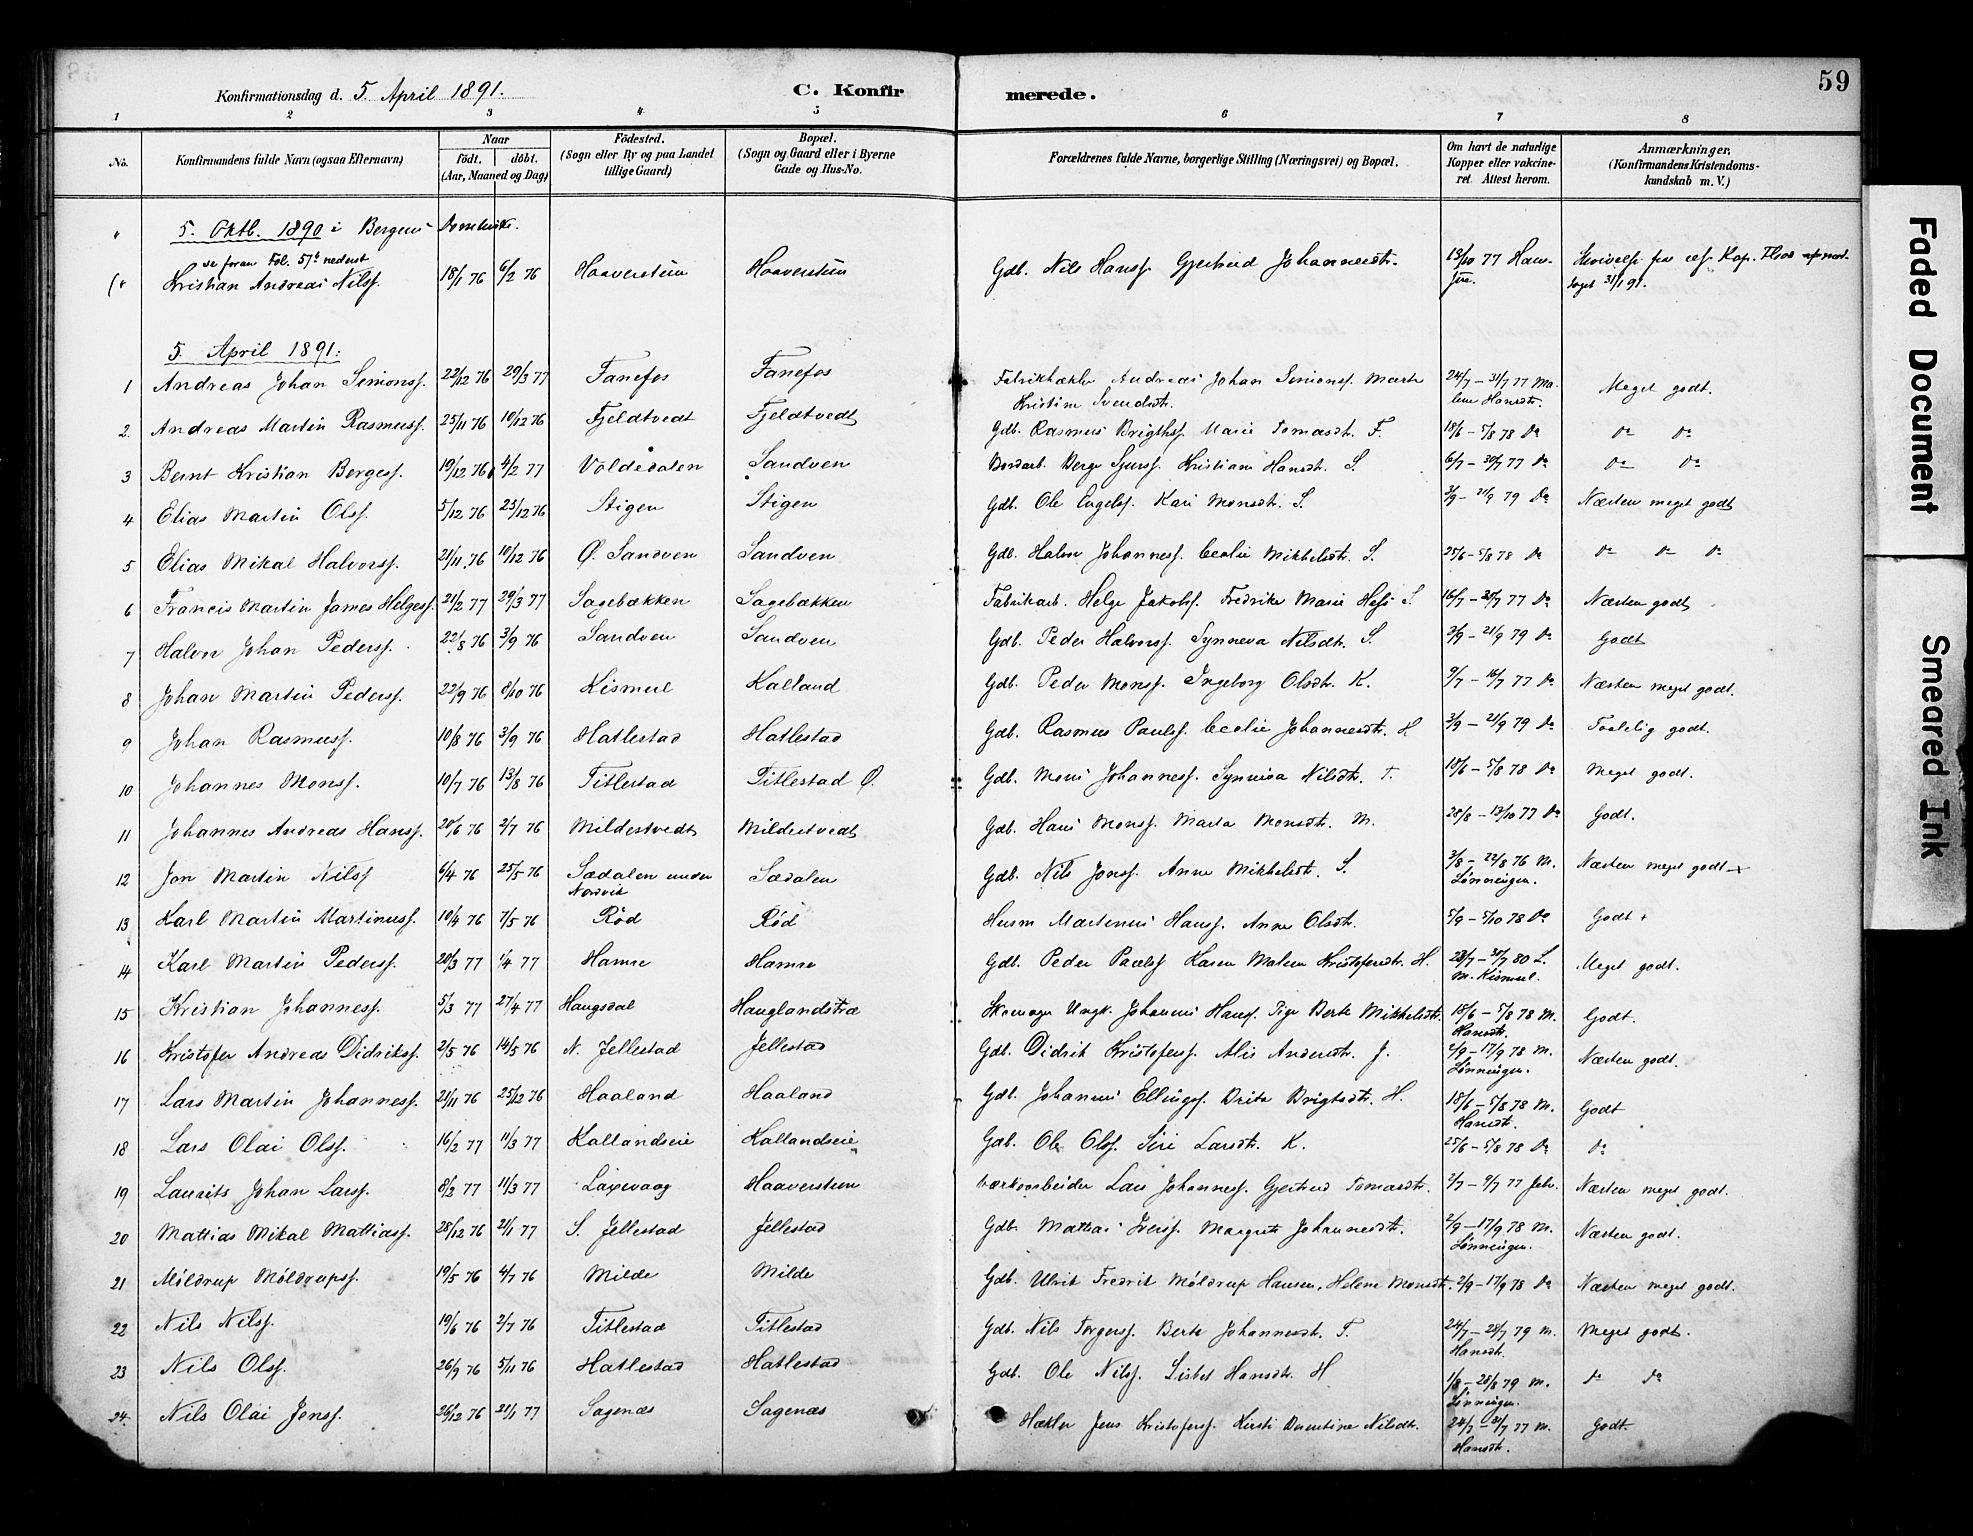 59
Konfirmationsdag d. 5. April 1891. C. Konfirmerede.
1 2 3 4 5 6 7 8
No. Konfirmandens fulde Navn (ogsaa Efternavn) Naar födt. döbt. (Aar, Maaned og Dag) Födested. (Sogn eller By og paa Landet tillige Gaard) Bopæl. (Sogn og Gaard eller i Byerne Gade og Hus-No. Forældrenes fulde Navne, borgerlige Stilling (Næringsvei) og Bopæl. Om havt de naturlige Kopper eller vakcineret. Attest herom. Anmærkninger, (Konfirmandens Kristendomskundskab m. V.)
" 5. Oktb. 1890 i Bergens Domkirke.
se foran Fol. 57b nederst
Kristian Andreas Nilss. 18/1 76 6/2 76 Haaverstun Haaverstun Gdb. Nils Hanss. Gjertrud Johannesdtr. 19/10 77
5. April 1891:
1 Andreas Johan Simonss. 22/12 76 29/3 77 Fanefos Fanefos Andreas Johan Simonss. Marte Kristine Svendsdtr. 24/7 – 31/7 77 Malene Hansdtr. Meget godt.
2. Andreas Martin Rasmuss. 25/11 76 10/12 76 Fjeldtvedt Fjeldtvedt Gdb. Rasmus Brigthss. Marie Tomasdtr. F. 18/6 – 5/8 78 Do Do Do
3 Bernt Kristian Bergess. 19/12 76 4/2 77 Voldedalen Sandven Berge Sjurss. Kristiane Hansdtr. S. 6/7 – 30/7 77 Do Do Do
4 Elias Martin Olss. 5/12 76 25/12 76 Stigen Stigen Gdb. Ole Engelss. Kari Monsdtr. S. 3/9 – 21/9 79 Do Næsten meget godt
5 Elias Mikal Halvorss. 21/11 76 10/12 76 Ø. Sandven Sandven Gdb. Halvor Johanness. Cecilie Mikkelsdtr. S. 25/6 – 5/8 78 Do Do Do Do
6 Francis Martin James Helgess. 21/2 77 29/3 77 Sagebækken Sagebækken Fabrikarb. Helge Jakobss. Fredrike Marie S. 16/7 – 30/7 77 Do Næsten godt
7 Halvor Johan Pederss. 22/8 76 3/9 76 Sandven Sandven Gdb. Peder Halvorss. Synneva Nilsdtr. S. 3/9 – 21/9 79 Do Godt
8 Johan Martin Pederss. 22/9 76 8/10 76 Kismul Kalland Gdb. Peder Monss. Ingeborg Olsdtr. K. 9/7 – 16/7 77 Do Næsten meget godt.
9 Johan Rasmuss. 10/8 76 3/9 76 Hatlestad Hatlestad Gdb. Rasmus Paulss. Cecilie Johannesdtr. H 3/9 – 21/9 79 Do Taalelig godt.
10 Johannes Monss. 10/7 76 13/8 76 Titlestad Titlestad Ø. Gdb. Mons Johanness. Synneva Nilsdtr. T. 18/6 – 5/8 78 Do Meget godt.
11 Johannes Andreas Hanss. 20/6 76 2/7 76 Mildestvedt Mildestvedt Gdb. Hans Monss. Marta Monsdtr. M. 28/8 – 13/10 77 Do Godt.
12 Jon Martin Nilss 6/4 76 25/5 76 Sædalen under Nordvik Sædalen Gdb. Nils Jonss. Anne Mikkelsdtr. S. 3/8 – 22/8 76 M. Lønningen. Næsten meget godt
13 Karl Martin Martinuss. 10/4 76 7/5 76 Rød Rød Husm Martinus Hanss. Anne Olsdtr. 5/9 – 5/10 78 Do Godt
14 Karl Martin Pederss. 20/3 77 1/4 77 Hamre Hamre Gdb. Peder Paulss Karen Malene Kristofersdtr. H. 28/7 – 31/7 80 L. M. Kismul. Meget godt.
15 Kristian Johanness. 5/3 77 27/4 77 Haugsdal Hauglandstræ Skomager Ungk. Johannes Hanss. Pige Berte Mikkelsdtr. 18/6 – 5/8 78 M. Hansdtr. Godt.
16 Kristofer Andreas Didrikss. 2/5 76 14/5 76 N. Jellestad Jellestad Gdb. Didrik Kristoferss. Alis Andersdtr. J. 2/9 – 17/9 78 M. Lønningen. Næsten godt.
17 Lars Martin Johanness. 21/11 76 25/12 76 Haaland Haaland Gdb. Johannes Ellingss. Brita Brigtsdtr. H. 18/6 – 5/8 78 M. Hansdt. Godt
18 Lars Olai Olss. 16/2 77 11/3 77 Kallandseie Kallandseie Gdb. Ole Olss. Siri Larsdtr. K. 25/6 – 5/8 78 Do Do
19 Laurits Johan Larss. 8/2 77 11/3 77 Laxevaag Haaverstun Værksarbeider Lars Johanness. Gjertrud Tomasdtr. 2/7 – 9/7 77 Næsten meget godt.
20 Mattias Mikal Mattiass. 28/12 76 21/1 77 S. Jellestad Jellestad Gdb. Mattias Iverss. Margrete Johannesdtr. 2/9 – 17/9 78 M. Lønningen. Næsten godt.
21 Móldrup Móldrupss. 19/5 76 4/7 76 Milde Milde Gdb. Ulrik Fredrik Móldrup Hansen, Helene Monsdtr. 2/9 – 17/9 78 Do Næsten meget godt.
22 Nils Nilss. 19/6 76 2/7 76 Titlestad Titlestad Gdb. Nils Torgerss. Berte Johannesdtr. T. 24/7 – 28/7 79 M. Hansdtr. Meget godt.
23 Nils Olss. 26/9 76 5/11 76 Hatlestad Hatlestad Gdb. Ole Nilss. Lisbet Hansdtr. H 1/8 – 28/8 79 M. Lønningen. Do Do
24. Nils Olai Jenss. 26/12 76 21/1 77 Sagenæs Sagenæs Hækler Jens Kristoferss. Kirsti Nilsdtr. 24/7 – 31/7 77 M. Hansdtr. Godt.
Faded Document
Smeared Ink